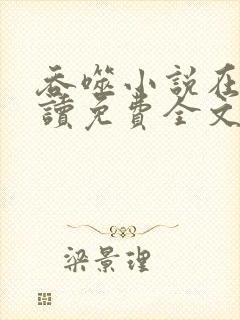 吞噬小说在
讀免費全文
梁景理